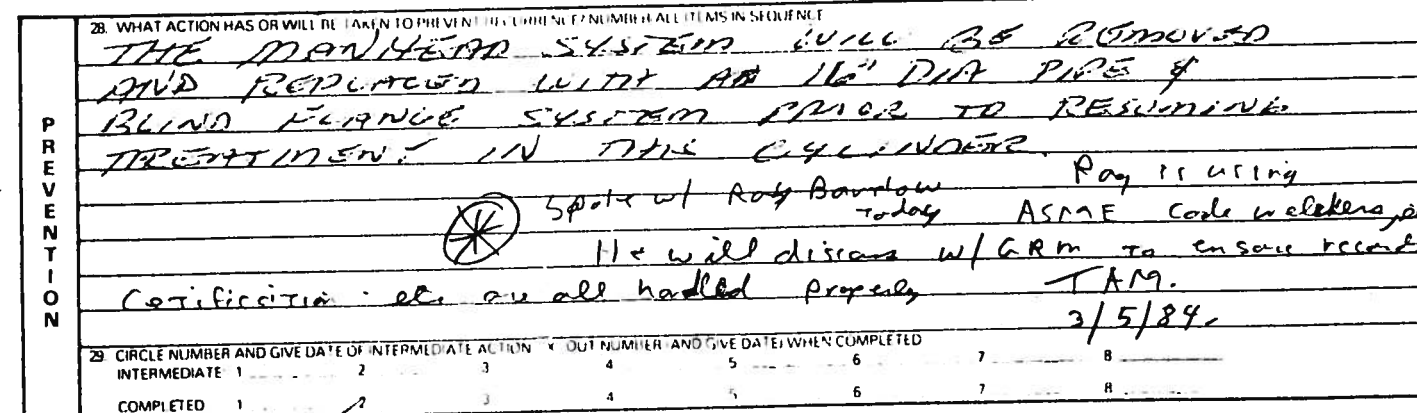 28. WHAT ACTION HAS OR WILL BE TAKEN TO PREVENT RECURRENCE? NUMBER ALL ITEMS IN SEQUENCE
THE MANHEAD SYSTEM WILL BE REMOVED
AND REPLACED WITH AN 16" DIA PIPE &
BLIND FLANGE SYSTEM PRIOR TO RESUMING
TREATMENT IN THIS CYLINDER.
PREVENTION
Spoke w/ Ray Barlow Today
Ray is using ASME Code welders,
He will discuss w/ GRM to ensure record
Certification etc are all handled properly
TAM.
3/5/84.
29. CIRCLE NUMBER AND GIVE DATE OF INTERMEDIATE ACTION X OUT NUMBER (AND GIVE DATE) WHEN COMPLETED
INTERMEDIATE 1 2 3 4 5 6 7 8
COMPLETED 1 2 3 4 5 6 7 8